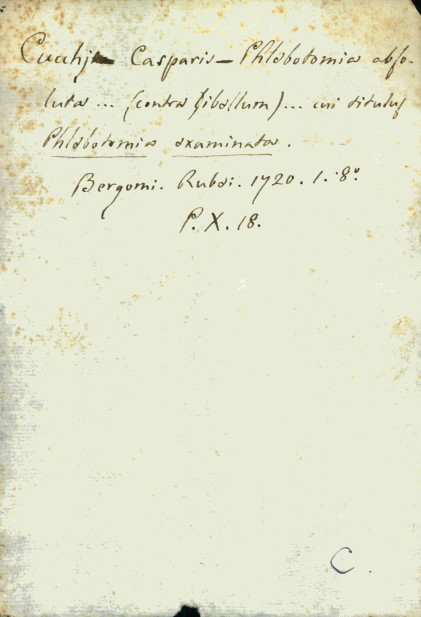 Cucchj Casparis - Phlebotomia abso-
luta ... (contra libellum) ... cui titulus
Phlebotomia examinata.
Bergomi. Rubei. 1720. 1. 8º
P. X. 18.
C.